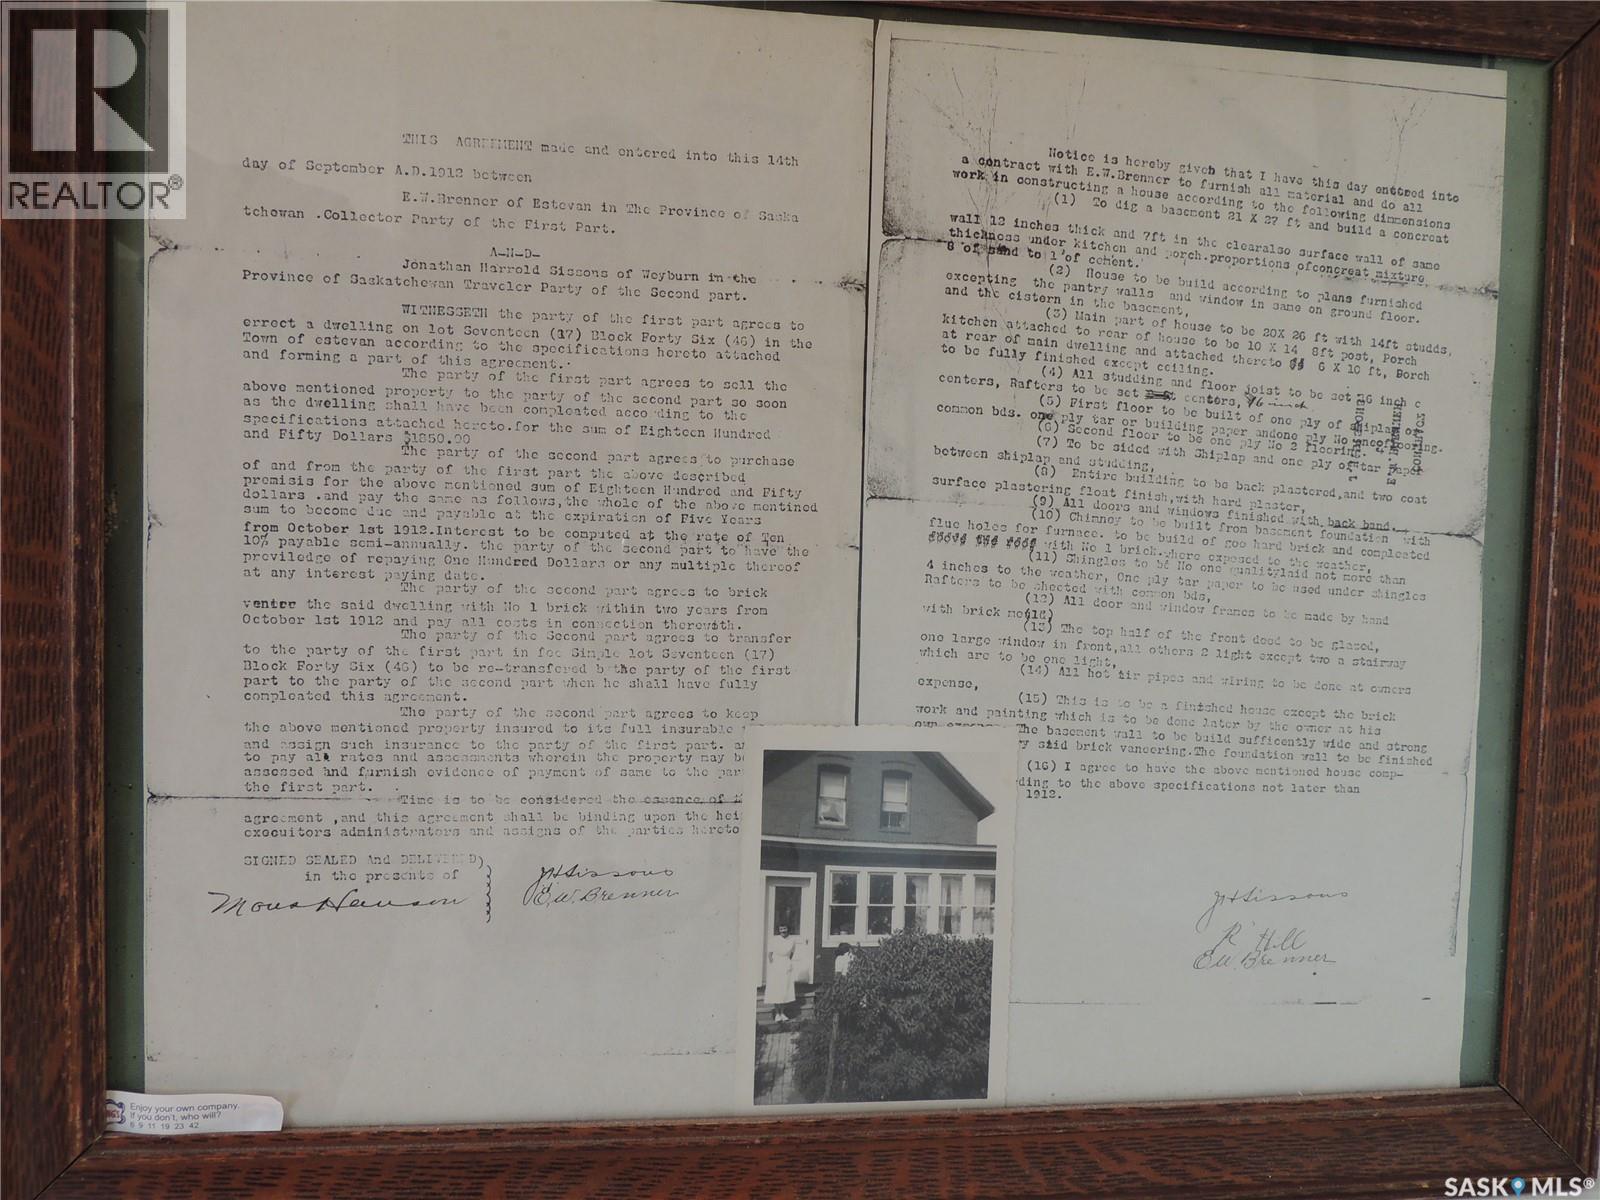 REALTOR®
THIS AGREEMENT made and entered into this 14th
day of September A.D.1912 between
E.W.Brenner of Estevan in The Province of Saska
tchewan .Collector Party of the First Part.
A-N-D-
Jonathan Harrold Sissons of Weyburn in the
Province of Saskatchewan Traveler Party of the Second part.
WITNESSETH the party of the first part agrees to
errect a dwelling on lot Seventeen (17) Block Forty Six (46) in the
Town of estevan according to the specifications hereto attached
and forming a part of this agreement.
The party of the first part agrees to sell the
above mentioned property to the party of the second part so soon
as the dwelling shall have been compleated according to the
specifications attached hereto.for the sum of Eighteen Hundred
and Fifty Dollars $1850.00
The party of the second part agrees to purchase
of and from the party of the first part the above described
premisis for the above mentioned sum of Eighteen Hundred and Fifty
dollars .and pay the same as follows,the whole of the above mentined
sum to become due and payable at the expiration of Five Years
from October 1st 1912.Interest to be computed at the rate of Ten
10% payable semi-annually. the party of the second part to have the
previledge of repaying One Hundred Dollars or any multiple thereof
at any interest paying date.
The party of the second part agrees to brick
the said dwelling with No 1 brick within two years from
October 1st 1912 and pay all costs in connection therewith.
The party of the Second part agrees to transfer
to the party of the first part in fee Simple lot Seventeen (17)
Block Forty Six (46) to be re-transfered b the party of the first
part to the party of the second part when he shall have fully
compleated this agreement.
The party of the second part agrees to keep
the above mentioned property insured to its full insurable
and assign such insurance to the party of the first part.
to pay all rates and assessments wherein the property may b
assessed and furnish evidence of payment of same to the par
the first part.
Time is to be considered the essence of
agreement ,and this agreement shall be binding upon the hei
execuitors administrators and assigns of the parties hereto
SIGNED SEALED And DELIVERED)
in the presents of
JHSissons
E.W.Brenner
Notice is hereby given that I have this day enttred into
a contract with E.W.Brenner to furnish all material and do all
work in constructing a house according to the following dimmensions
(1) To dig a basement 21 X 27 ft and build a concreat
wall 12 inches thick and 7ft in the clearalso surface wall of same
thickness under kitchen and porch.proportions ofconcreat mixture
8 of sand to 1 of cement.
(2) House to be build according to plans furnished
excepting the pantry walls and window in same on ground floor.
and the cistern in the basement,
(3) Main part of house to be 20X 26 ft with 14ft studds,
kitchen attached to rear of house to be 10 X 14 8ft post, Porch
at rear of main dwelling and attached thereto 6 X 10 ft, Porch
to be fully finished except ceiling.
(4) All studding and floor joist to be set 16 inch c
centers, Rafters to be set centers, 16 inch
(5) First floor to be built of one ply of shiplap or
common bds. one ply tar or building paper andone ply No onefooring.
(6) Second floor to be one ply No 2 flooring.
(7) To be sided with Shiplap and one ply of tar paper
between shiplap and studding,
(8) Entire building to be back plastered,and two coat
surface plastering float finish,with hard plaster,
(9) All doors and windows finished with back band.
(10) Chimney to be built from basement foundation with
flue holes for furnace. to be build of goo hard brick and compleated
with No 1 brick.where exposed to the weather,
(11) Shingles to be No one qualitylaid not more than
4 inches to the weather, One ply tar paper to be used under shingles
Rafters to be sheeted with common bds,
(12) All door and window frames to be made by hand
with brick
(13) The top half of the front dood to be glazed,
one large window in front,all others 2 light except two a stairway
which are to be one light,
(14) All hot air pipes and wiring to be done at owners
expense,
(15) This is to be a finished house except the brick
work and painting which is to be done later by the owner at his
The basement wall to be build sufficently wide and strong
said brick vaneering.The foundation wall to be finished
(16) I agree to have the above mentioned house comp-
ding to the above specifications not later than
1912.
JHSissons
R Hill
E.W.Brenner
Enjoy your own company.
If you don't, who will?
6 9 11 19 23 42
SASK MLS®